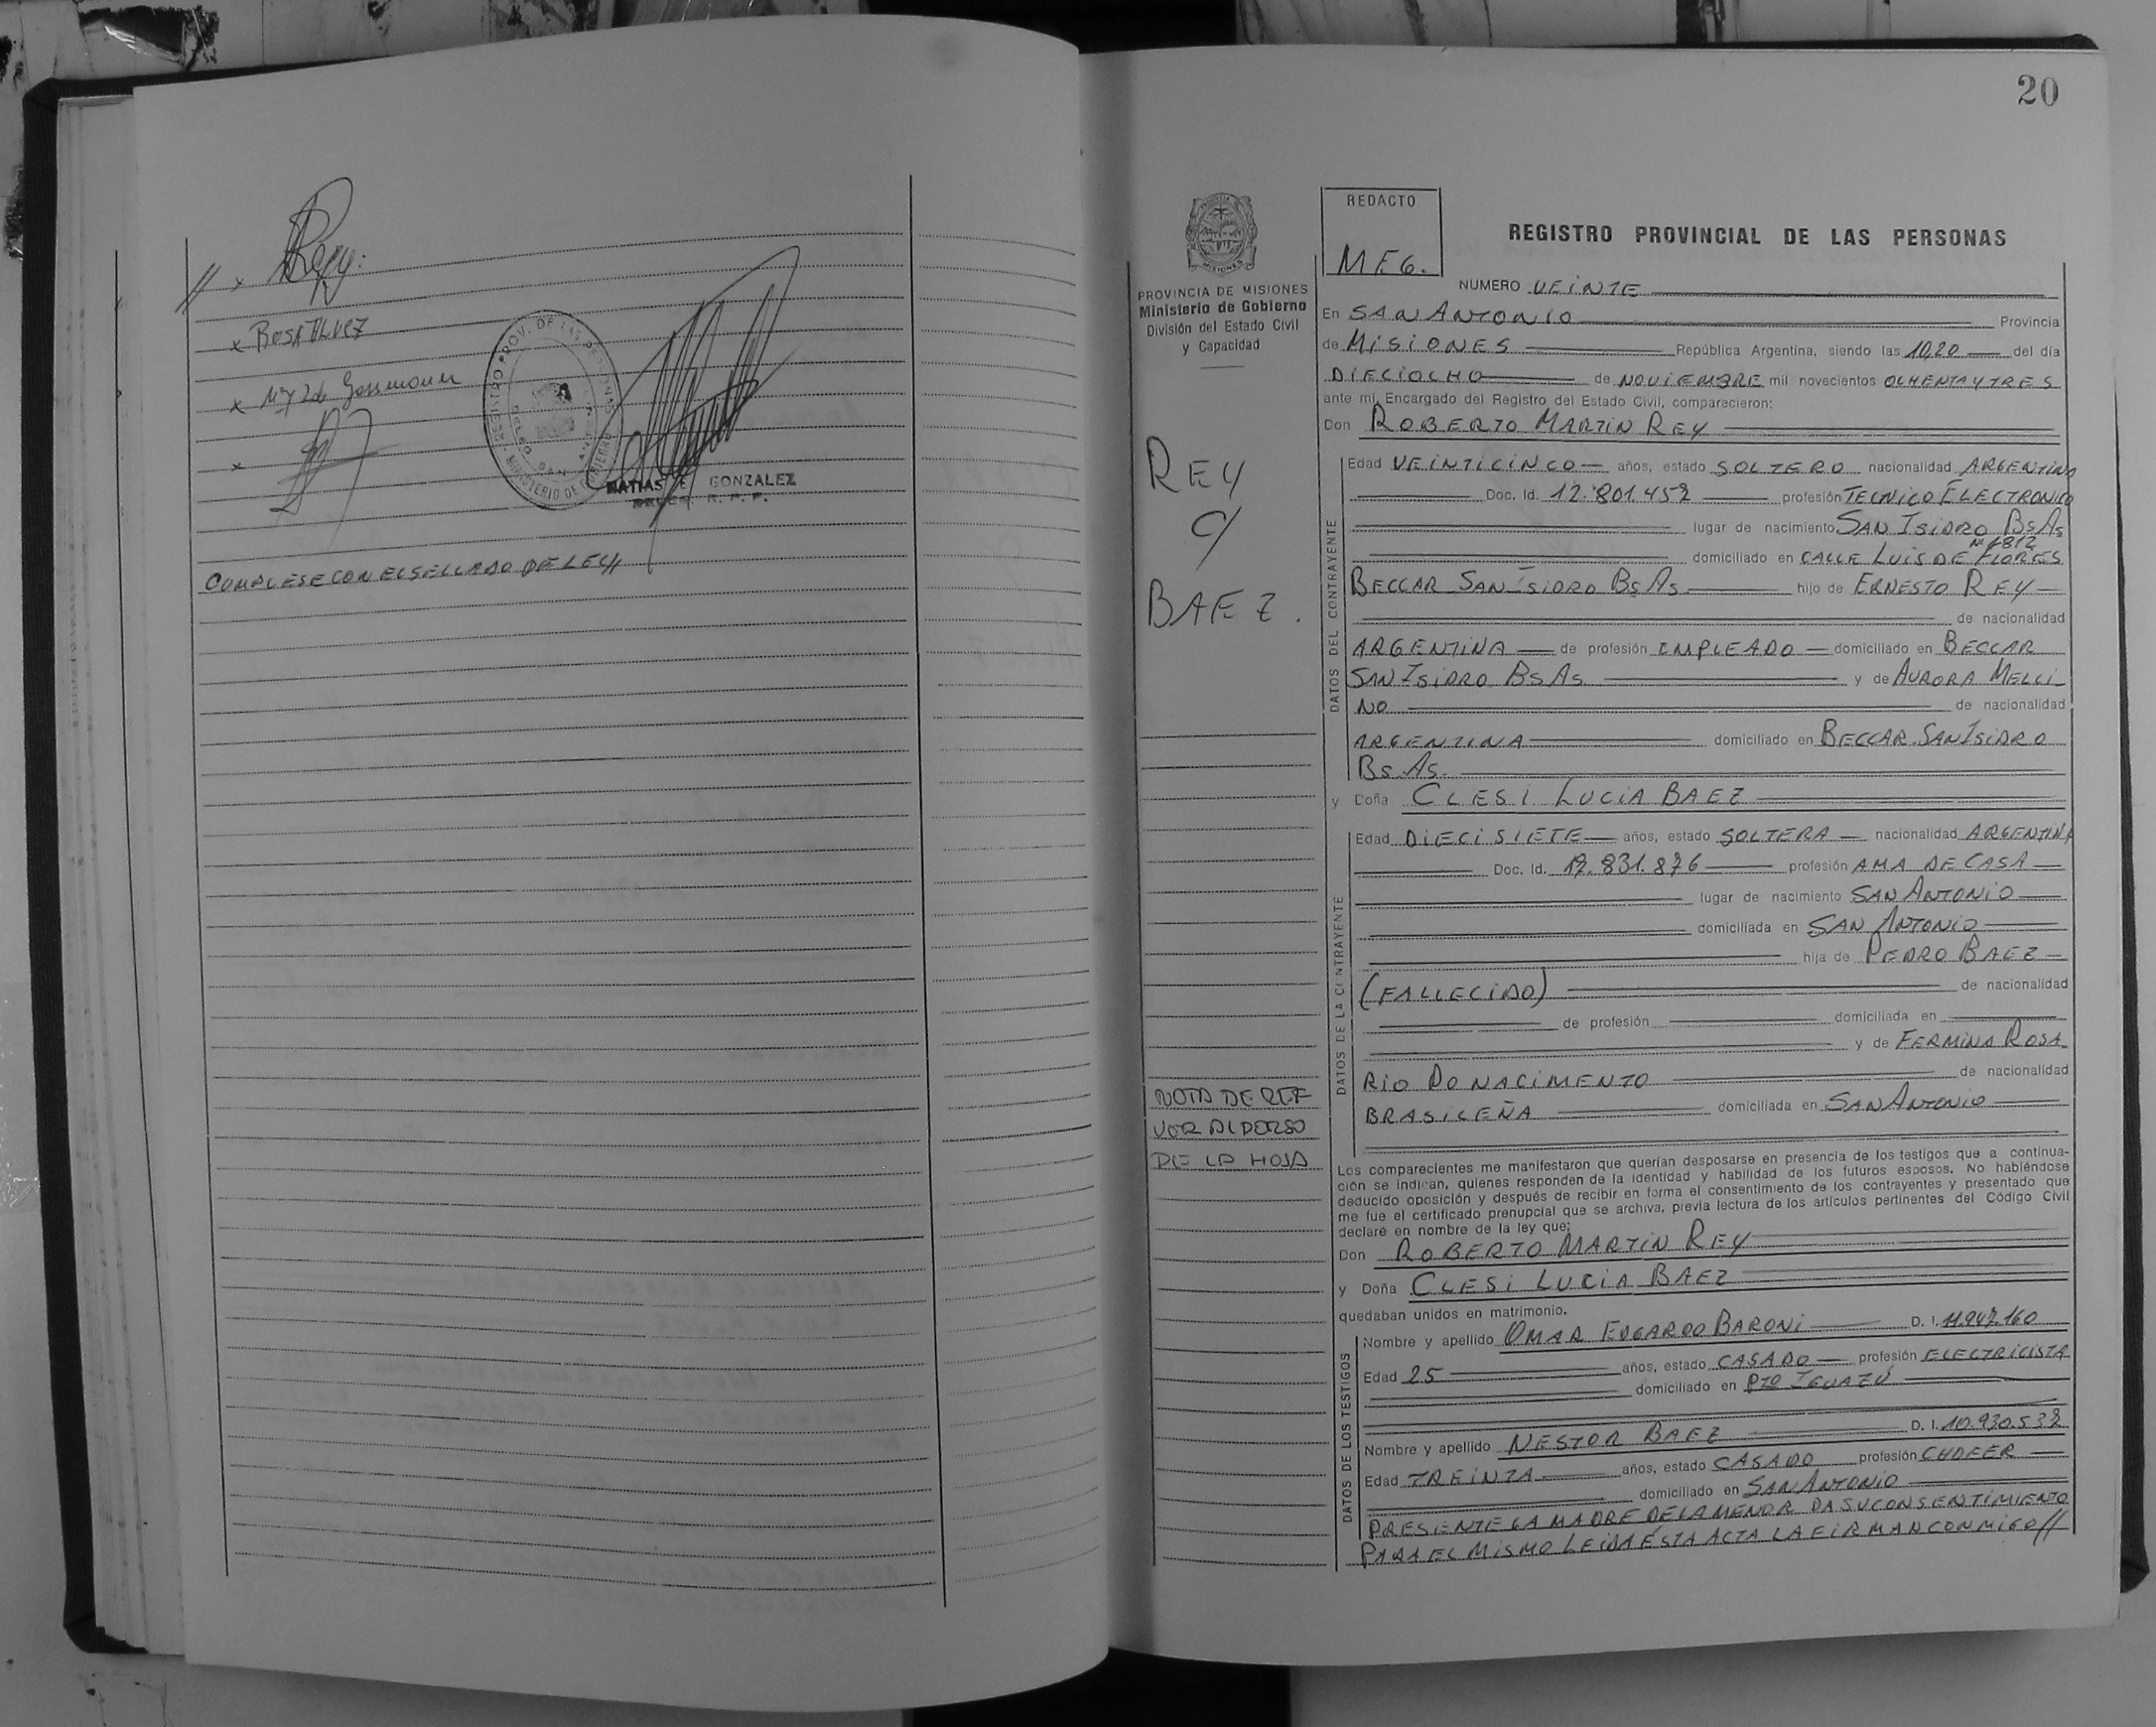 // x Rey.
x ROSA ALVEZ
x
x
REGISTRO PROV. DE LAS PERSONAS
MINISTERIO DE GOBIERNO
DELEG. SAN ANTONIO
MATIAS E GONZALEZ
DELEG. R. P. P.
COMPLESE CON EL SELLADO DE LEY
20
PROVINCIA DE MISIONES
Ministerio de Gobierno
División del Estado Civil
y Capacidad
REY
c/
BAEZ.
NOTA DE REF
VER AL DORSO
DE LA HOJA
REDACTO
M.E.G.
REGISTRO PROVINCIAL DE LAS PERSONAS
NUMERO VEINTE
En SAN ANTONIO Provincia
de MISIONES República Argentina, siendo las 10,20 del día
DIECIOCHO de NOVIEMBRE mil novecientos OCHENTA Y TRES
ante mi, Encargado del Registro del Estado Civil, comparecieron:
Don ROBERTO MARTIN REY
DATOS DEL CONTRAYENTE
Edad VEINTICINCO años, estado SOLTERO nacionalidad ARGENTINA
Doc. Id. 12.801.452 profesión TECNICO ELECTRONICO
lugar de nacimiento SAN ISIDRO Bs As
domiciliado en CALLE LUIS DE FLORES Nº 1812
BECCAR SAN ISIDRO Bs As hijo de ERNESTO REY
de nacionalidad
ARGENTINA de profesión EMPLEADO domiciliado en BECCAR
SAN ISIDRO Bs As y de AURORA MELLI-
NO de nacionalidad
ARGENTINA domiciliado en BECCAR SAN ISIDRO
Bs. As.
y Doña CLESI LUCIA BAEZ
DATOS DE LA CONTRAYENTE
Edad DIECISIETE años, estado SOLTERA nacionalidad ARGENTINA
Doc. Id. 17.831.876 profesión AMA DE CASA
lugar de nacimiento SAN ANTONIO
domiciliada en SAN ANTONIO
hija de PEDRO BAEZ
(FALLECIDO) de nacionalidad
de profesión domiciliada en
y de FERMINA ROSA
RIO DO NACIMENTO de nacionalidad
BRASILEÑA domiciliada en SAN ANTONIO
Los comparecientes me manifestaron que querían desposarse en presencia de los testigos que a continua-
ción se indican, quienes responden de la identidad y habilidad de los futuros esposos. No habiéndose
deducido oposición y después de recibir en forma el consentimiento de los contrayentes y presentado que
me fue el certificado prenupcial que se archiva, previa lectura de los artículos pertinentes del Código Civil
declaré en nombre de la ley que:
Don ROBERTO MARTIN REY
y Doña CLESI LUCIA BAEZ
quedaban unidos en matrimonio.
DATOS DE LOS TESTIGOS
Nombre y apellido OMAR EDGARDO BARONI D. I. 11.947.160
Edad 25 años, estado CASADO profesión ELECTRICISTA
domiciliado en PTO IGUAZÚ
Nombre y apellido NESTOR BAEZ D. I. 10.930.532
Edad TREINTA años, estado CASADO profesión CHOFER
domiciliado en SAN ANTONIO
PRESENTE LA MADRE DE LA MENOR DA SU CONSENTIMIENTO
PARA EL MISMO LEIDA ÉSTA ACTA LA FIRMAN CONMIGO//